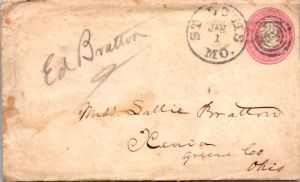 Ed Bratton
ST. LOUIS
JAN
1
MO.
Miss Sallie Bratton
Xenia
Greene Co
Ohio